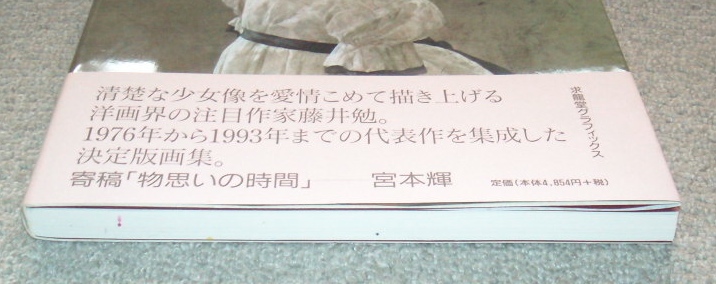 清楚な少女像を愛情こめて描き上げる
洋画界の注目作家藤井勉。
1976年から1993年までの代表作を集成した
決定版画集。
寄稿「物思いの時間」――宮本輝
定価(本体4,854円+税)
求龍堂グラフィックス